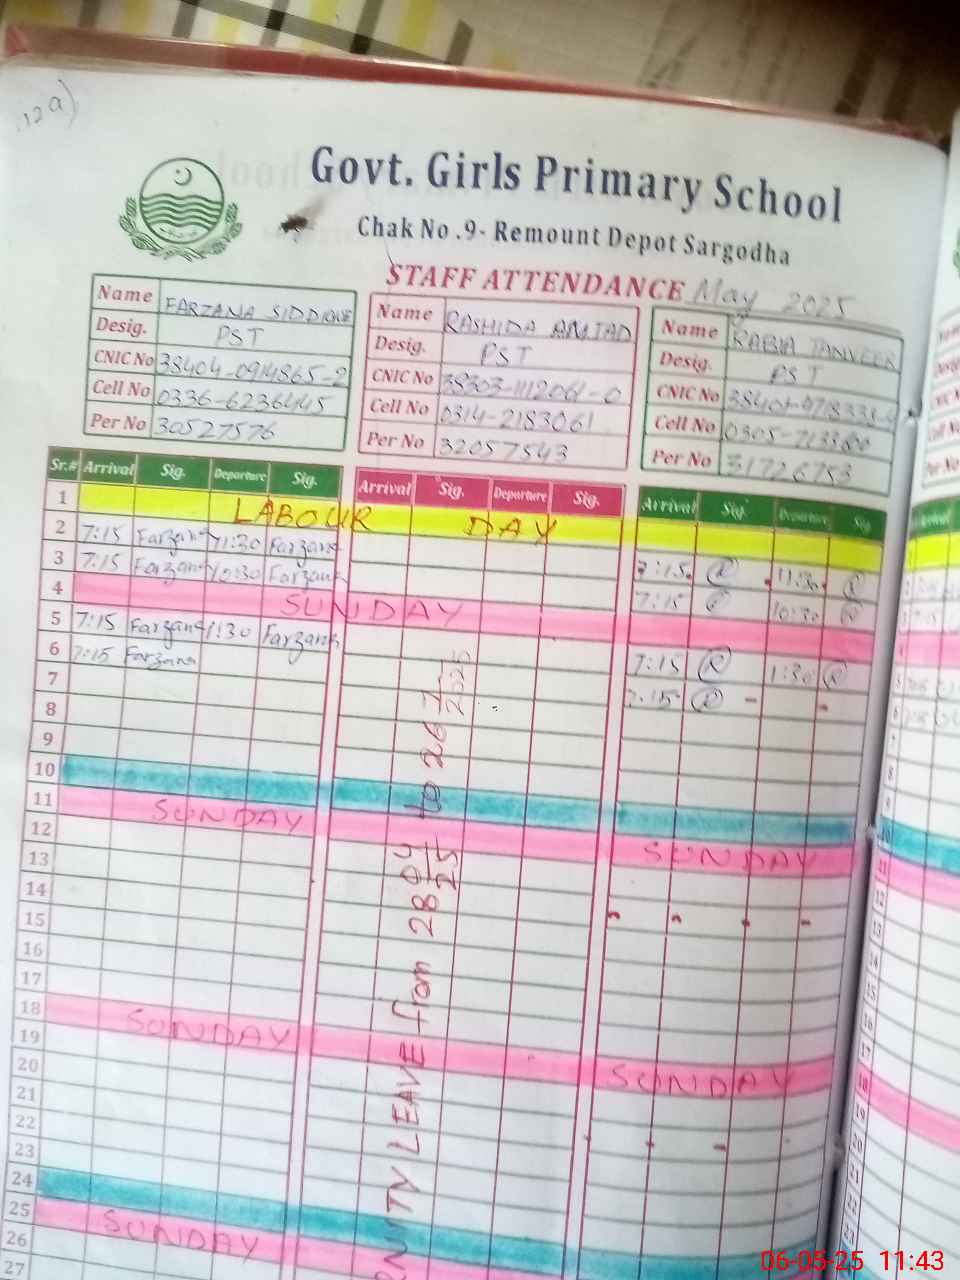 Govt. Girls Primary School
Chak No .9- Remount Depot Sargodha
STAFF ATTENDANCE May 2025
Name FARZANA SIDDIQUE
Desig. PST
CNIC No 38404-0914865-2
Cell No 0336-6236445
Per No 30527576
Name RASHIDA AMJAD
Desig. PST
CNIC No 38303-1112061-0
Cell No 0314-2183061
Per No 32057543
Name RABIA TANVEER
Desig. PST
CNIC No
Cell No
Per No 31726753
Sr.# Arrival Sig. Departure Sig. Arrival Sig. Departure Sig. Arrival Sig. Departure Sig
1 LABOUR DAY
2 7:15 Farzana 11:30 Farzana 7:15 R 11:30 R
3 7:15 Farzana 10:30 Farzana 7:15 R 10:30 R
4 SUNDAY
5 7:15 Farzana 1:30 Farzana 7:15 R 1:30 R
6 7:15 Farzana 7:15 R
7
8
9
10
11 SUNDAY SUNDAY
12
13
14
15
16
17
18 SUNDAY SUNDAY
19
20
21
22
23
24
25 SUNDAY
26
27
LEAVE from 28 04/25 to 26 7/2025
06-05-25 11:43